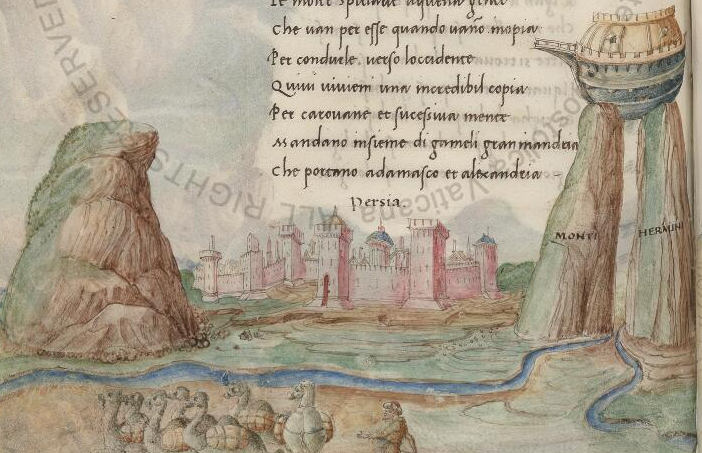 Le monte
Che uan per esse quando uano inopia
Per condurle uerso loccidente
Quiui uiuieni una incredibil copia
Per carouane et sucessiua mente
Mandano insieme di gameli gran mandria
Che portano adamasco et alexandria
Persia.
MONTI HERMINI
ALL RIGHTS RESERVED
Vaticana